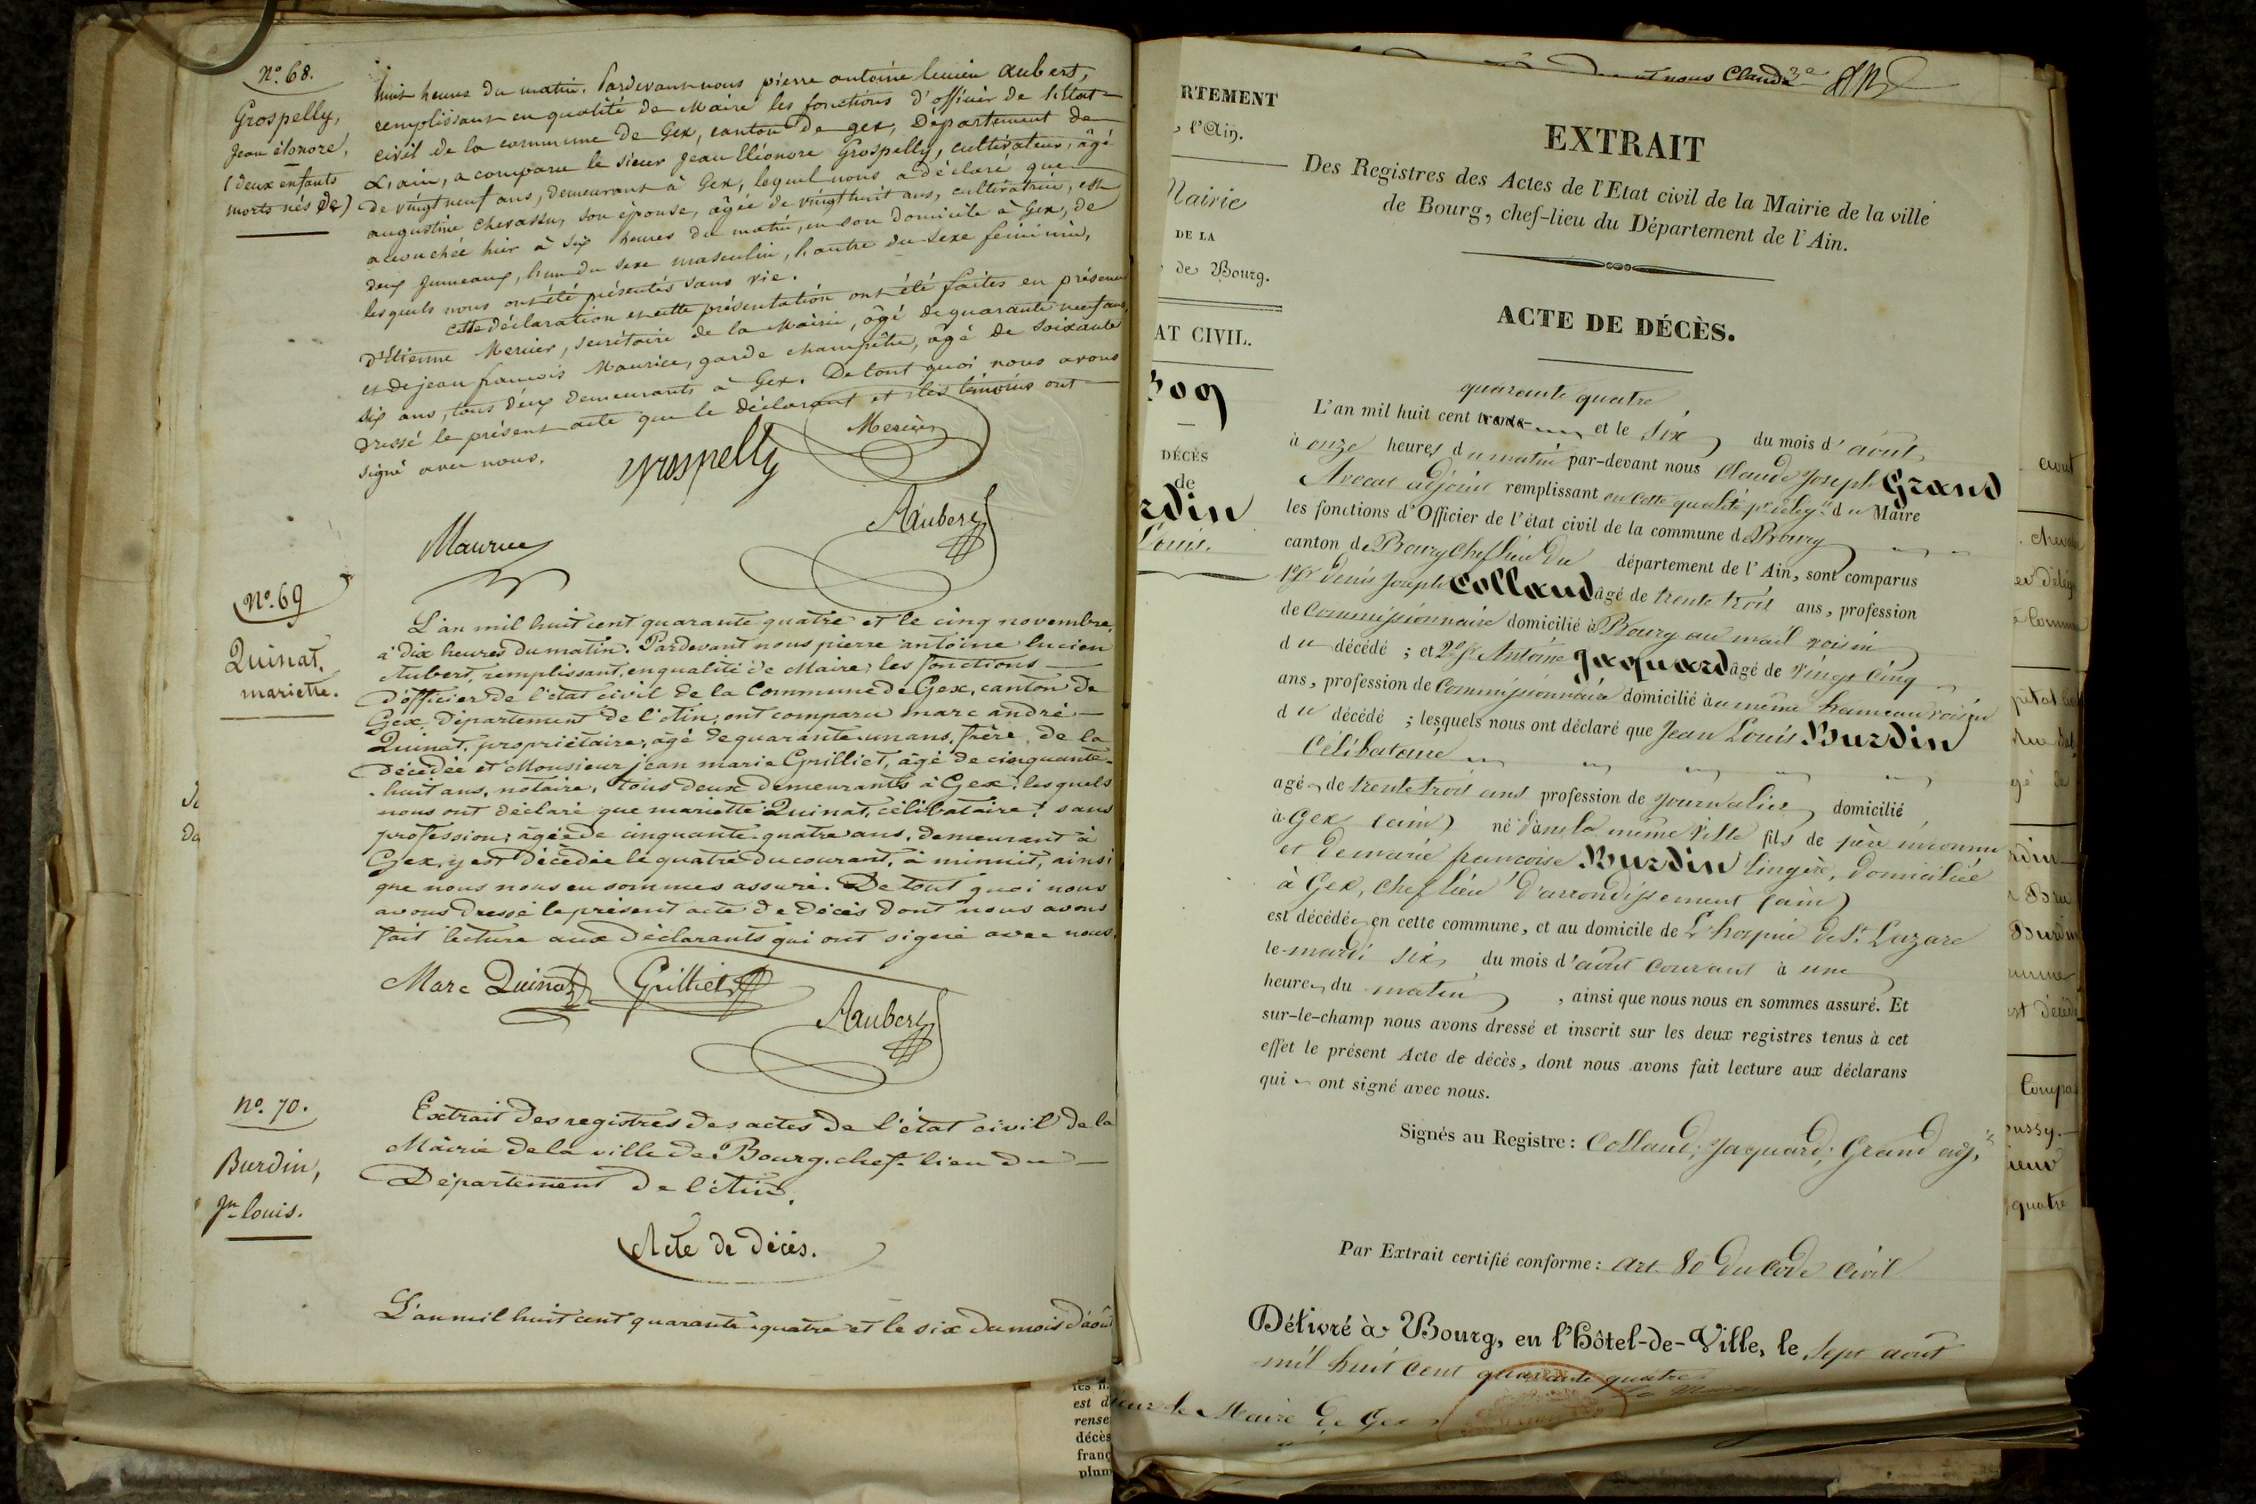 No. 68.
Grospelly,
Jean élonore,
(deux enfants
morts nés de)
huit heures du matin. Pardevant nous pierre antoine lucien Aubert,
remplissant en qualité de Maire les fonctions d'officier de l'Etat
civil de la commune de Gex, canton de gex, Département de
L'ain, a comparu le sieur Jean Eléonore Grospelly, cultivateur, âgé
de vingt neuf ans, demeurant à Gex, lequel nous a déclaré que
augustine Chevassu, son épouse, âgée de vingt huit ans, cultivatrice, est
accouchée hier à six heures du matin, en son domicile à Gex, de
deux Jumeaux, l'un du sexe masculin, l'autre du sexe féminin,
lesquels nous ont été présentés sans vie.
Cette déclaration et cette présentation ont été faites en présence
D'Etienne Mercier, secrétaire de la Mairie, âgé de quarante neuf ans,
et de jean françois Maurice, garde champêtre, âgé de soixante
dix ans, tous deux demeurants à Gex. De tout quoi nous avons
dressé le présent acte que le déclarant et les témoins ont
signé avec nous.
Grospelly
Mercier
Maurice
Aubert
No. 69
Quinat,
mariette.
L'an mil huit cent quarante quatre et le cinq novembre,
à dix heures du matin. Pardevant nous pierre antoine lucien
Aubert, remplissant, en qualité de Maire, les fonctions
d'officier de l'état civil de la Commune de Gex, canton de
Gex, Département de l'Ain, ont comparu marc andré
Quinat, propriétaire, âgé de quarante un ans, frère de la
décédée et Monsieur jean marie Grilliet, âgé de cinquante-
huit ans, notaire, tous deux demeurants à Gex, lesquels
nous ont déclaré que mariette Quinat, célibataire, sans
profession, âgée de cinquante quatre ans, demeurant à
Gex, y est décédée le quatre du courant, à minuit, ainsi
que nous nous en sommes assuré. De tout quoi nous
avons dressé le présent acte de décès dont nous avons
fait lecture aux déclarants qui ont signé avec nous.
Marc Quinat
Grilliet
Aubert
No. 70.
Burdin,
Jn. louis.
Extrait des registres des actes de l'état civil de la
Mairie de la ville de Bourg, chef-lieu du
Département de l'Ain.
Acte de décès.
L'an mil huit cent quarante-quatre et le six du mois d'août
RTEMENT
l'Ain.
Mairie
DE LA
de Bourg.
AT CIVIL.
309
DÉCÈS
de
rdin
Louis.
nous Claude
EXTRAIT
Des Registres des Actes de l'Etat civil de la Mairie de la ville
de Bourg, chef-lieu du Département de l'Ain.
ACTE DE DÉCÈS.
quarante quatre
L'an mil huit cent trente et le six du mois d'août
à onze heures du matin par-devant nous Claude Joseph Grand
Avocat adjoint remplissant en cette qualité par délégon. du Maire
les fonctions d'Officier de l'état civil de la commune de Bourg
canton de Bourg chef lieu du département de l'Ain, sont comparus
1° Sr denis Joseph Colland âgé de trente trois ans, profession
de Commissionnaire domicilié à Bourg au mail voisin
du décédé ; et 2° Sr Antoine Jacquard âgé de vingt cinq
ans, profession de Commissionnaire domicilié au même hameau voisin
du décédé ; lesquels nous ont déclaré que Jean Louis Burdin
Célibataire
agé de trente trois ans profession de Journalier domicilié
à Gex (ain) né dans la même Ville fils de père inconnu
et de marie françoise Burdin lingère, domiciliée
à Gex, chef lieu d'arrondissement (ain)
est décédé en cette commune, et au domicile de L'hospice de St. Lazare
le mardi six du mois d'août Courant à une
heure du matin , ainsi que nous nous en sommes assuré. Et
sur-le-champ nous avons dressé et inscrit sur les deux registres tenus à cet
effet le présent Acte de décès, dont nous avons fait lecture aux déclarans
qui ont signé avec nous.
Signés au Registre : Colland, Jacquard, Grand adj.
Par Extrait certifié conforme : art. 80 du Code Civil
Délivré à Bourg, en l'Hôtel-de-Ville, le sept aout
mil huit cent quarante quatre
le Maire de Gex
est d
rense
décès
franç
plum